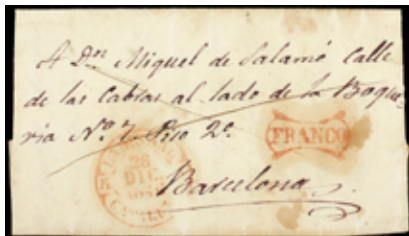 A Dn Miguel de Salamó Calle
de las Cabras al lado de la Boque
ria No 7 Piso 2o
FRANCO
28
DIC
Barcelona